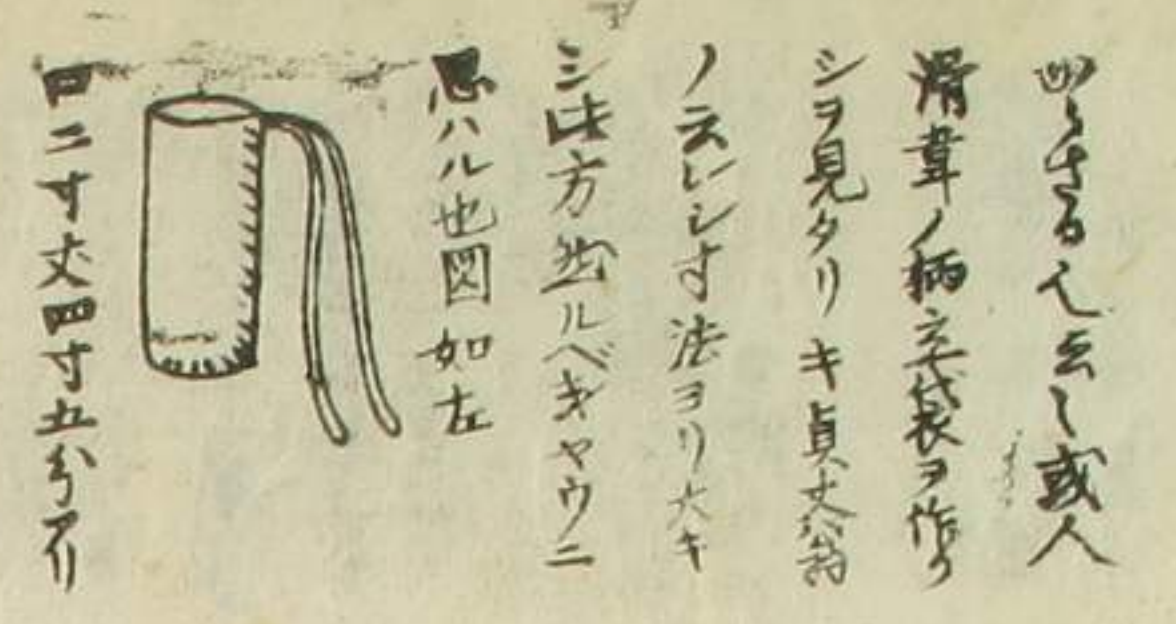 さる人云し或人
滑韋ノ柄立袋ヲ作リ
シヲ見タリキ貞丈翁
ノ云レシ寸法ヨリ大キ
シ此方然ルベキヤウニ
思ハル也図如左
口二寸丈四寸五分アリ